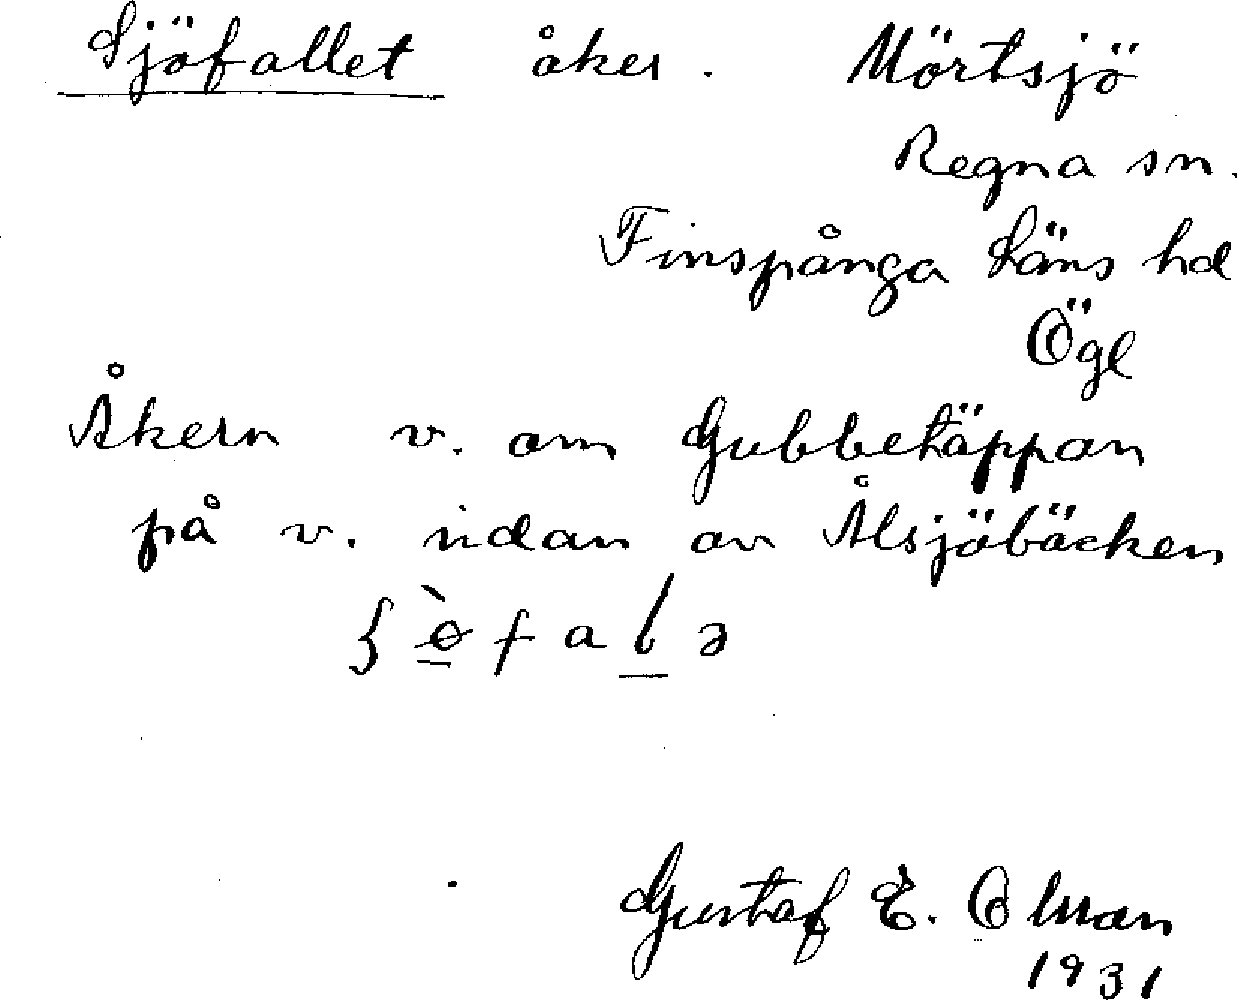 Sjöfallet åker. Mörtsjö
Regna sn.
Finspånga Läns hd
Ögl
Åkern v. om Gubbetäppan
på v. sidan av Ålsjöbäcken
Gustaf E. Olsson
1931